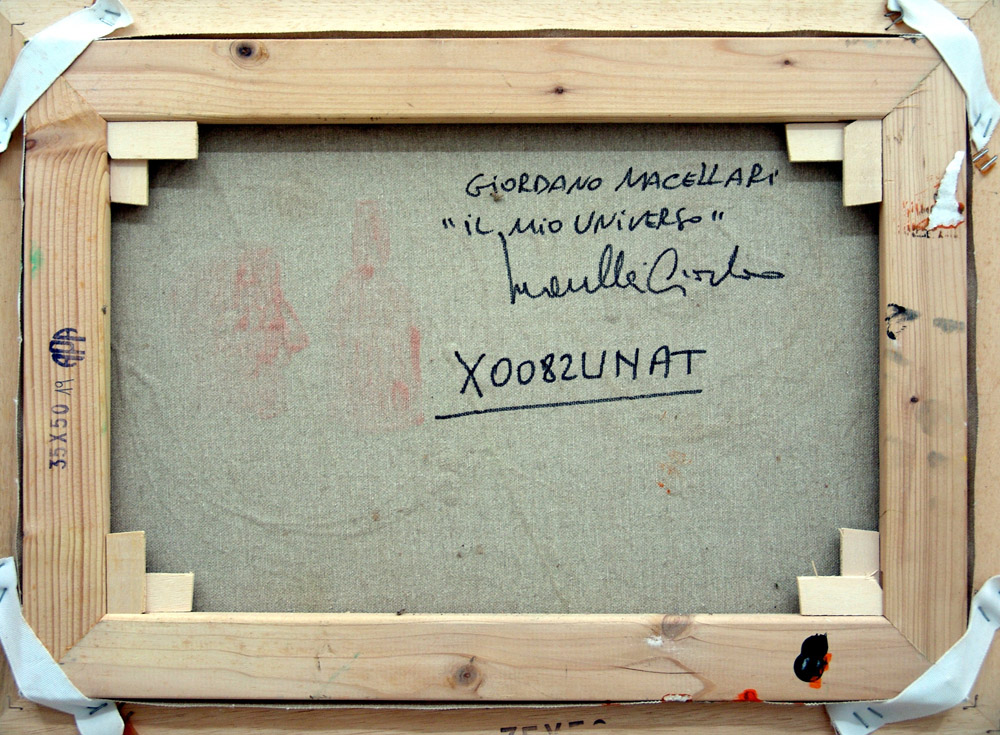 GIORDANO MACELLARI
"IL MIO UNIVERSO"
Macellari Giordano
X0082UNAT
35X50 19
35X50